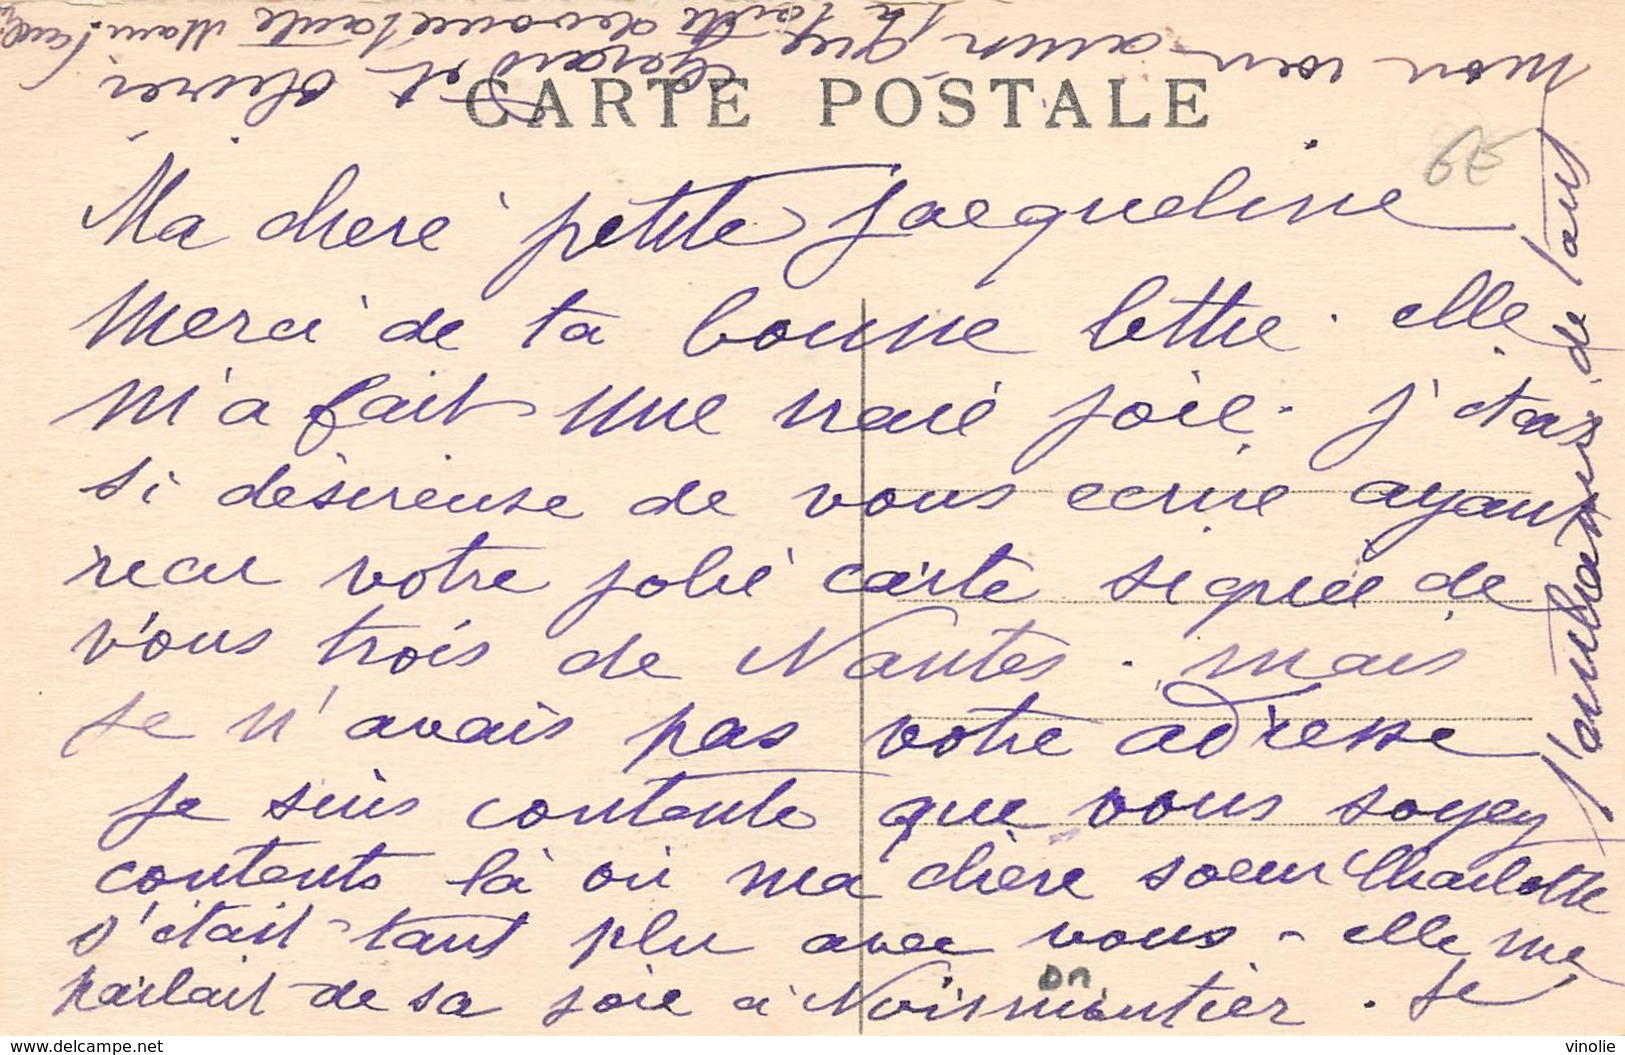 CARTE POSTALE
6€
Ma chere petite Jacqueline
Merci de ta bonne lettre. elle
m'a fait une vraie joie. j'étais
si désireuse de vous ecrire ayant
recu votre jolie carte signée de
vous trois de Nantes. mais
je n'avais pas votre adresse
Je suis contente que vous soyez
contents là où ma chère soeur Charlotte
s'était tant plu avec vous - elle me
parlait de sa joie à Noirmoutier. Je
on
de tous
mon
Gerard et Olivier
tante
delcampe.net
vinolie